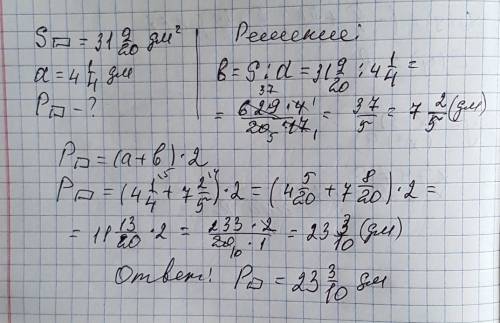 S▭ = 31 9/20 дм²
a = 4 1/4 дм
P▭ - ?
Решение:
b = S : a = 31 9/20 : 4 1/4 =
= 629·4/20·17 = 37/5 = 7 2/5 (дм)
P▭ = (a + b) · 2
P▭ = (4 1/4 + 7 2/5) · 2 = (4 5/20 + 7 8/20) · 2 =
= 11 13/20 · 2 = 233·2/20·1 = 23 3/10 (дм)
Ответ: P▭ = 23 3/10 дм